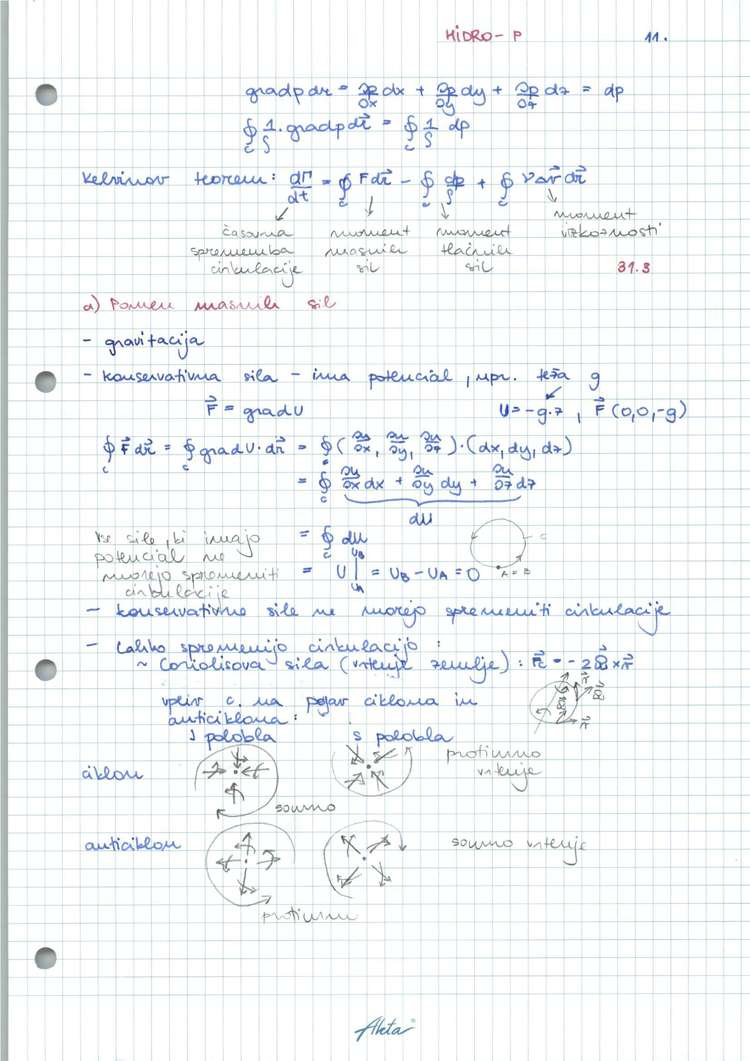 HIDRO-P 11.
grad p dr = ∂p/∂x dx + ∂p/∂y dy + ∂p/∂z dz = dp
∮c 1/ρ · grad p dr⃗ = ∮c 1/ρ dp
Kelvinov teorem: dΓ/dt = ∮c F dr⃗ - ∮c dp/ρ + ∮c ν Δv⃗ dr⃗
časovna sprememba cirkulacije
moment masnih sil
moment tlačnih sil
moment vizkoznosti
31.3
a) Pomen masnih sil
- gravitacija
- konservativna sila - ima potencial, npr. teža g
F⃗ = grad U
U = -g·z, F⃗ (0,0,-g)
∮c F⃗ dr⃗ = ∮c grad U · dr⃗ = ∮c (∂u/∂x, ∂u/∂y, ∂u/∂z) · (dx, dy, dz)
= ∮c ∂u/∂x dx + ∂u/∂y dy + ∂u/∂z dz
dU
vse sile, ki imajo
potencial ne
morejo spremeniti
cirkulacije
= ∮c du
= U |UA UB = UB - UA = 0
C
A = B
- konservativne sile ne morejo spremeniti cirkulacije
- Lahko spremenijo cirkulacijo:
~ Coriolisova sila (vrtenje zemlje): F⃗c = -2Ω⃗ × v⃗
vpliv c. na pojav ciklona in
anticiklona:
J polobla S polobla
ciklon
protiurno
vrtenje
sourno
anticiklon
sourno vrtenje
protiurno
Akta